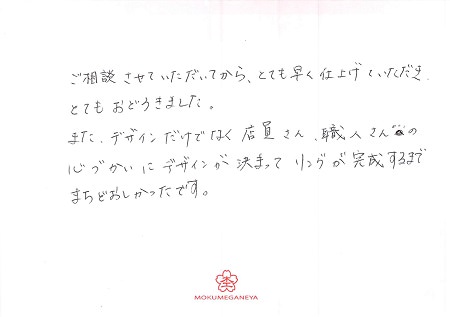 ご相談させていただいてから、とても早く仕上げていただき、
とてもおどろきました。
また、デザインだけでなく店員さん、職人さんの
心づかいにデザインが決まってリングが完成するまで
まちどおしかったです。
MOKUMEGANEYA